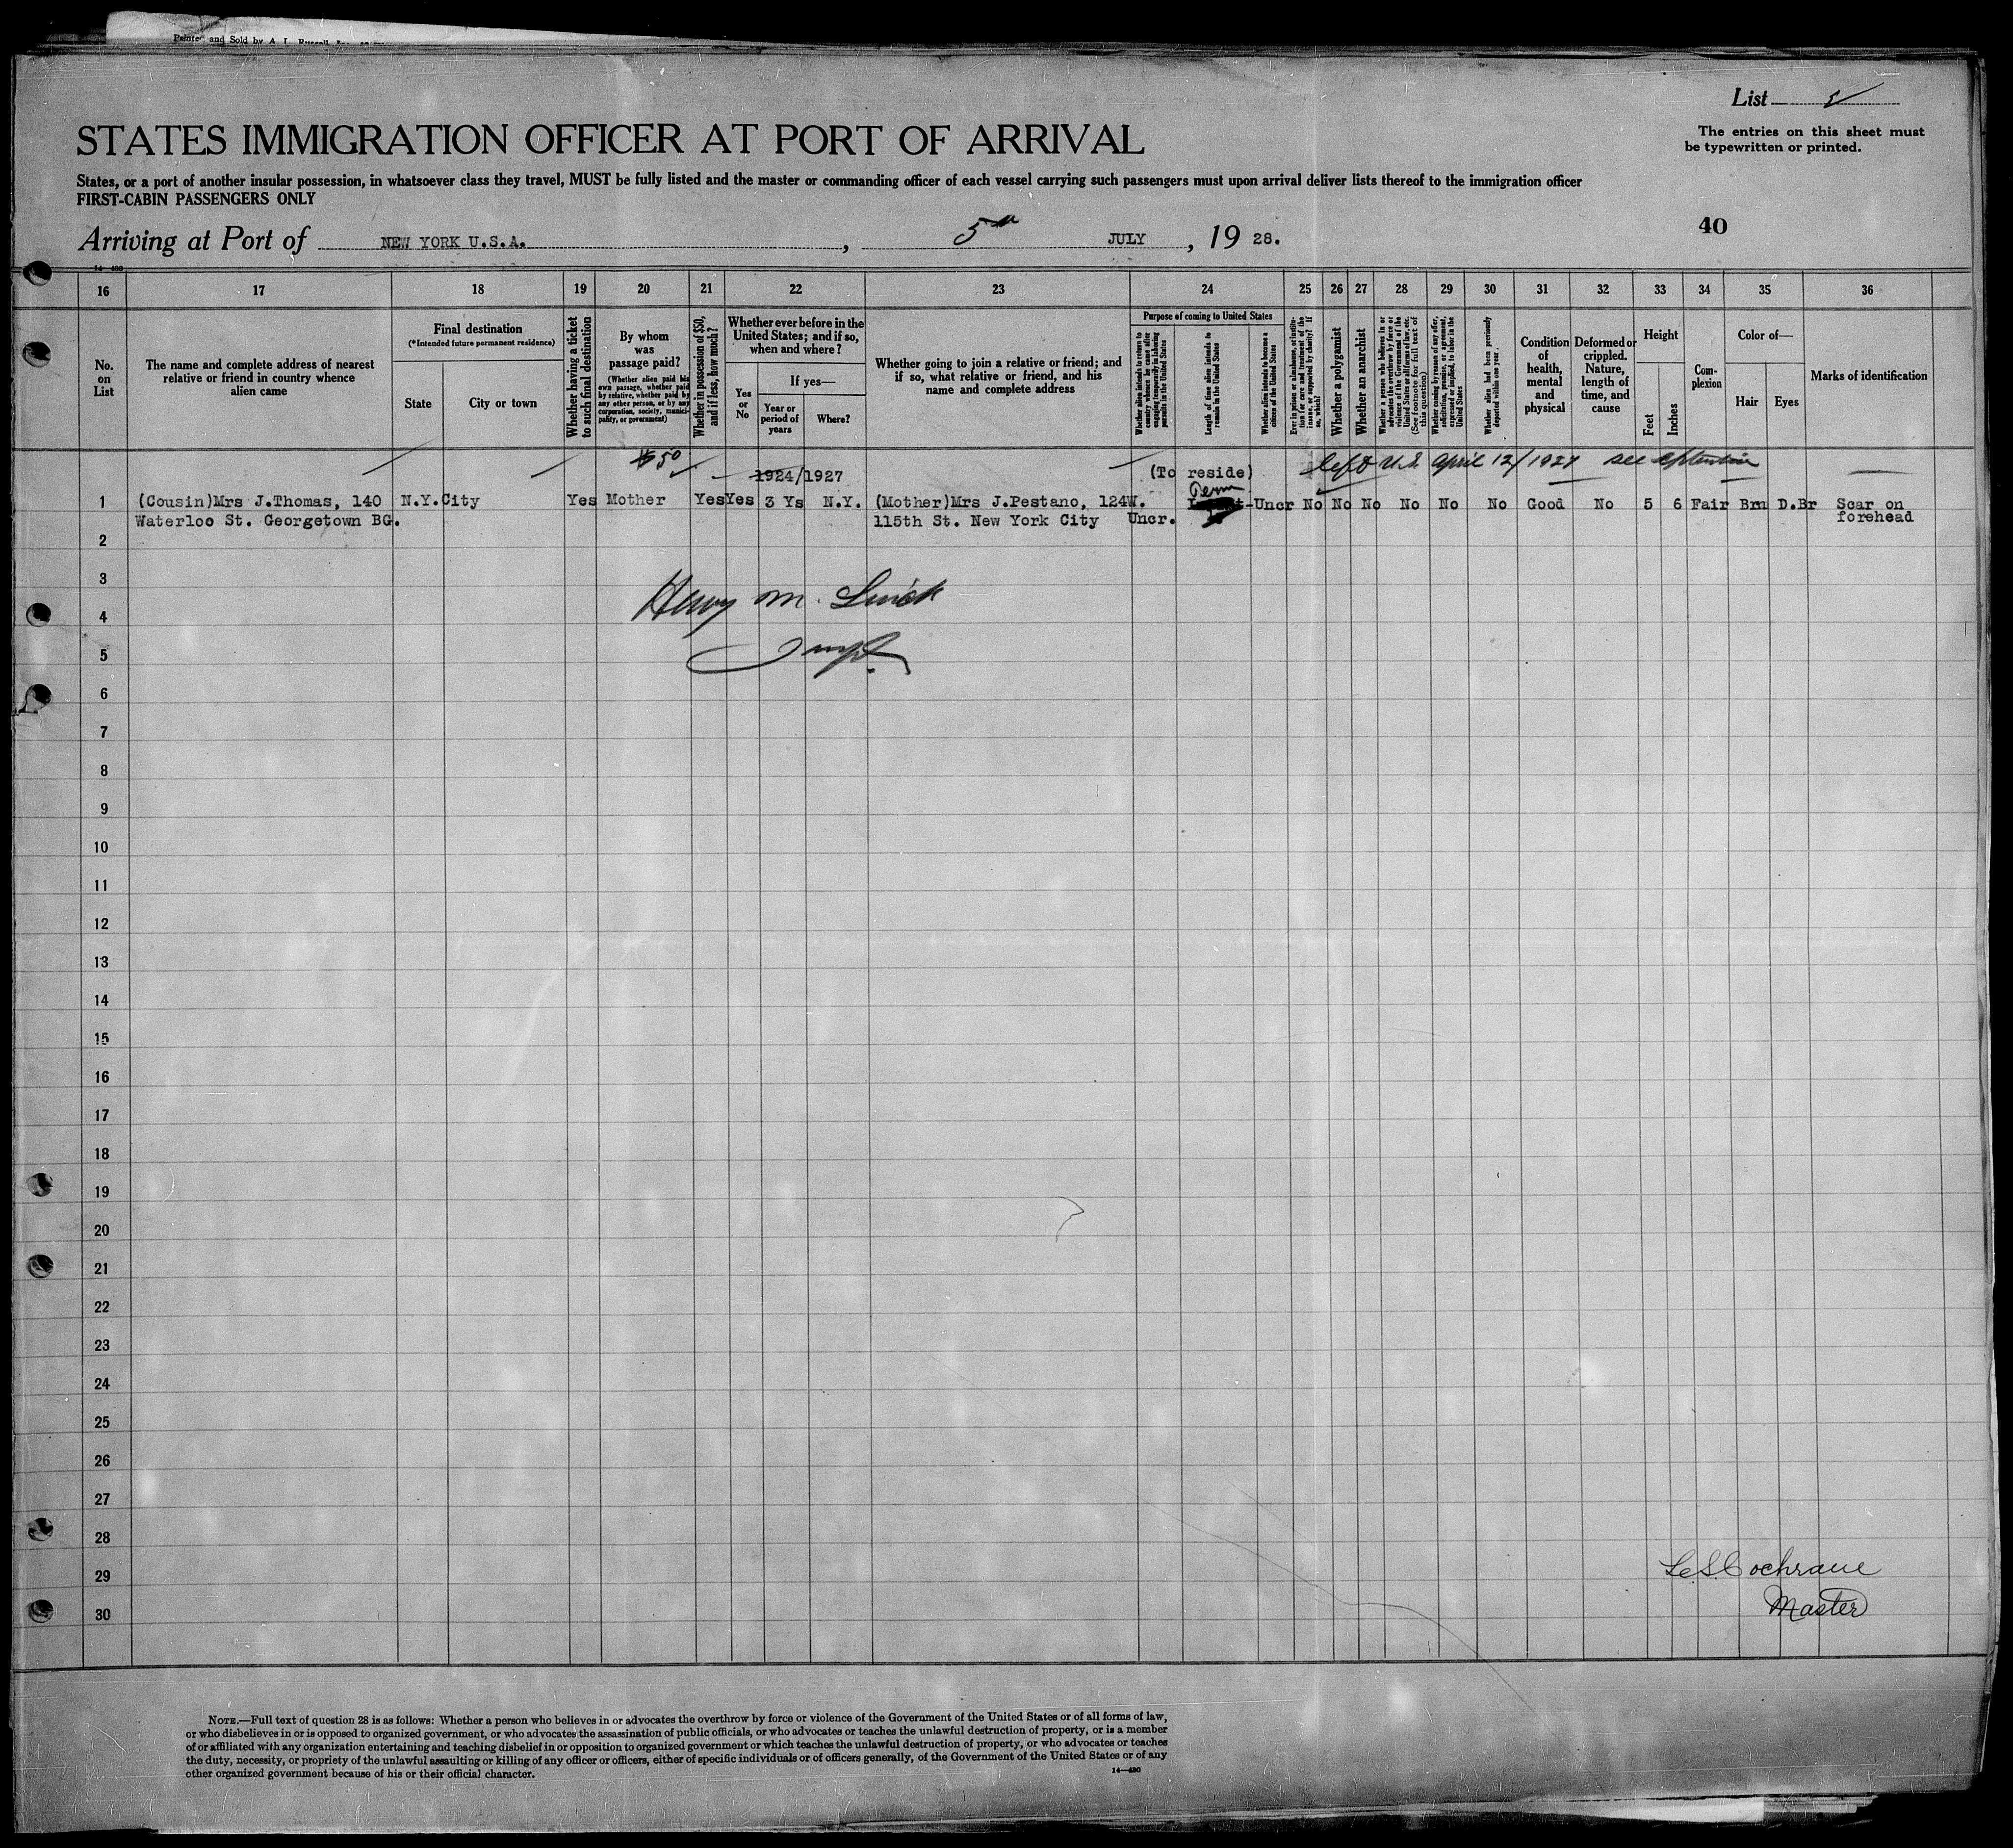 Printed and Sold by A. L. Russell
List 5
The entries on this sheet must
be typewritten or printed.
STATES IMMIGRATION OFFICER AT PORT OF ARRIVAL
States, or a port of another insular possession, in whatsoever class they travel, MUST be fully listed and the master or commanding officer of each vessel carrying such passengers must upon arrival deliver lists thereof to the immigration officer
FIRST-CABIN PASSENGERS ONLY
40
Arriving at Port of NEW YORK U.S.A., 5th JULY, 19 28.
14—430
16 17 18 19 20 21 22 23 24 25 26 27 28 29 30 31 32 33 34 35 36
No.
on
List
The name and complete address of nearest
relative or friend in country whence
alien came
Final destination
(*Intended future permanent residence)
State
City or town
Whether having a ticket
to such final destination
By whom
was
passage paid?
(Whether alien paid his
own passage, whether paid
by relative, whether paid by
any other person, or by any
corporation, society, munici-
pality, or government)
Whether in possession of $50,
and if less, how much?
Whether ever before in the
United States; and if so,
when and where?
Yes
or
No
If yes—
Year or
period of
years
Where?
Whether going to join a relative or friend; and
if so, what relative or friend, and his
name and complete address
Purpose of coming to United States
Whether alien intends to return to
country whence he came after
engaging temporarily in laboring
pursuits in the United States
Length of time alien intends to
remain in the United States
Whether alien intends to become a
citizen of the United States
Ever in prison or almshouse, or institu-
tion for care and treatment of the
insane, or supported by charity? If
so, which?
Whether a polygamist
Whether an anarchist
Whether a person who believes in or
advocates the overthrow by force or
violence of the Government of the
United States or all forms of law, etc.
(See footnote for full text of
this question)
Whether coming by reason of any offer,
solicitation, promise, or agreement,
expressed or implied, to labor in the
United States
Whether alien had been previously
deported within one year.
Condition
of
health,
mental
and
physical
Deformed or
crippled.
Nature,
length of
time, and
cause
Height
Feet
Inches
Com-
plexion
Color of—
Hair
Eyes
Marks of identification
$50
1924/1927
(To reside)
left U.S. April 12/1927 see
Perm
1 (Cousin)Mrs J.Thomas, 140 N.Y.City Yes Mother Yes Yes 3 Ys N.Y. (Mother)Mrs J.Pestano, 124W. Uncr No No No No No No Good No 5 6 Fair Brn D.Br Scar on
Waterloo St. Georgetown BG. 115th St. New York City Uncr. forehead
2
3
Henry M.
4
5
Inspt.
6
7
8
9
10
11
12
13
14
15
16
17
18
19
20
21
22
23
24
25
26
27
28
29
L.S. Cochrane
30
Master
NOTE.—Full text of question 28 is as follows: Whether a person who believes in or advocates the overthrow by force or violence of the Government of the United States or of all forms of law,
or who disbelieves in or is opposed to organized government, or who advocates the assassination of public officials, or who advocates or teaches the unlawful destruction of property, or is a member
of or affiliated with any organization entertaining and teaching disbelief in or opposition to organized government or which teaches the unlawful destruction of property, or who advocates or teaches
the duty, necessity, or propriety of the unlawful assaulting or killing of any officer or officers, either of specific individuals or of officers generally, of the Government of the United States or of any
other organized government because of his or their official character.
14—430